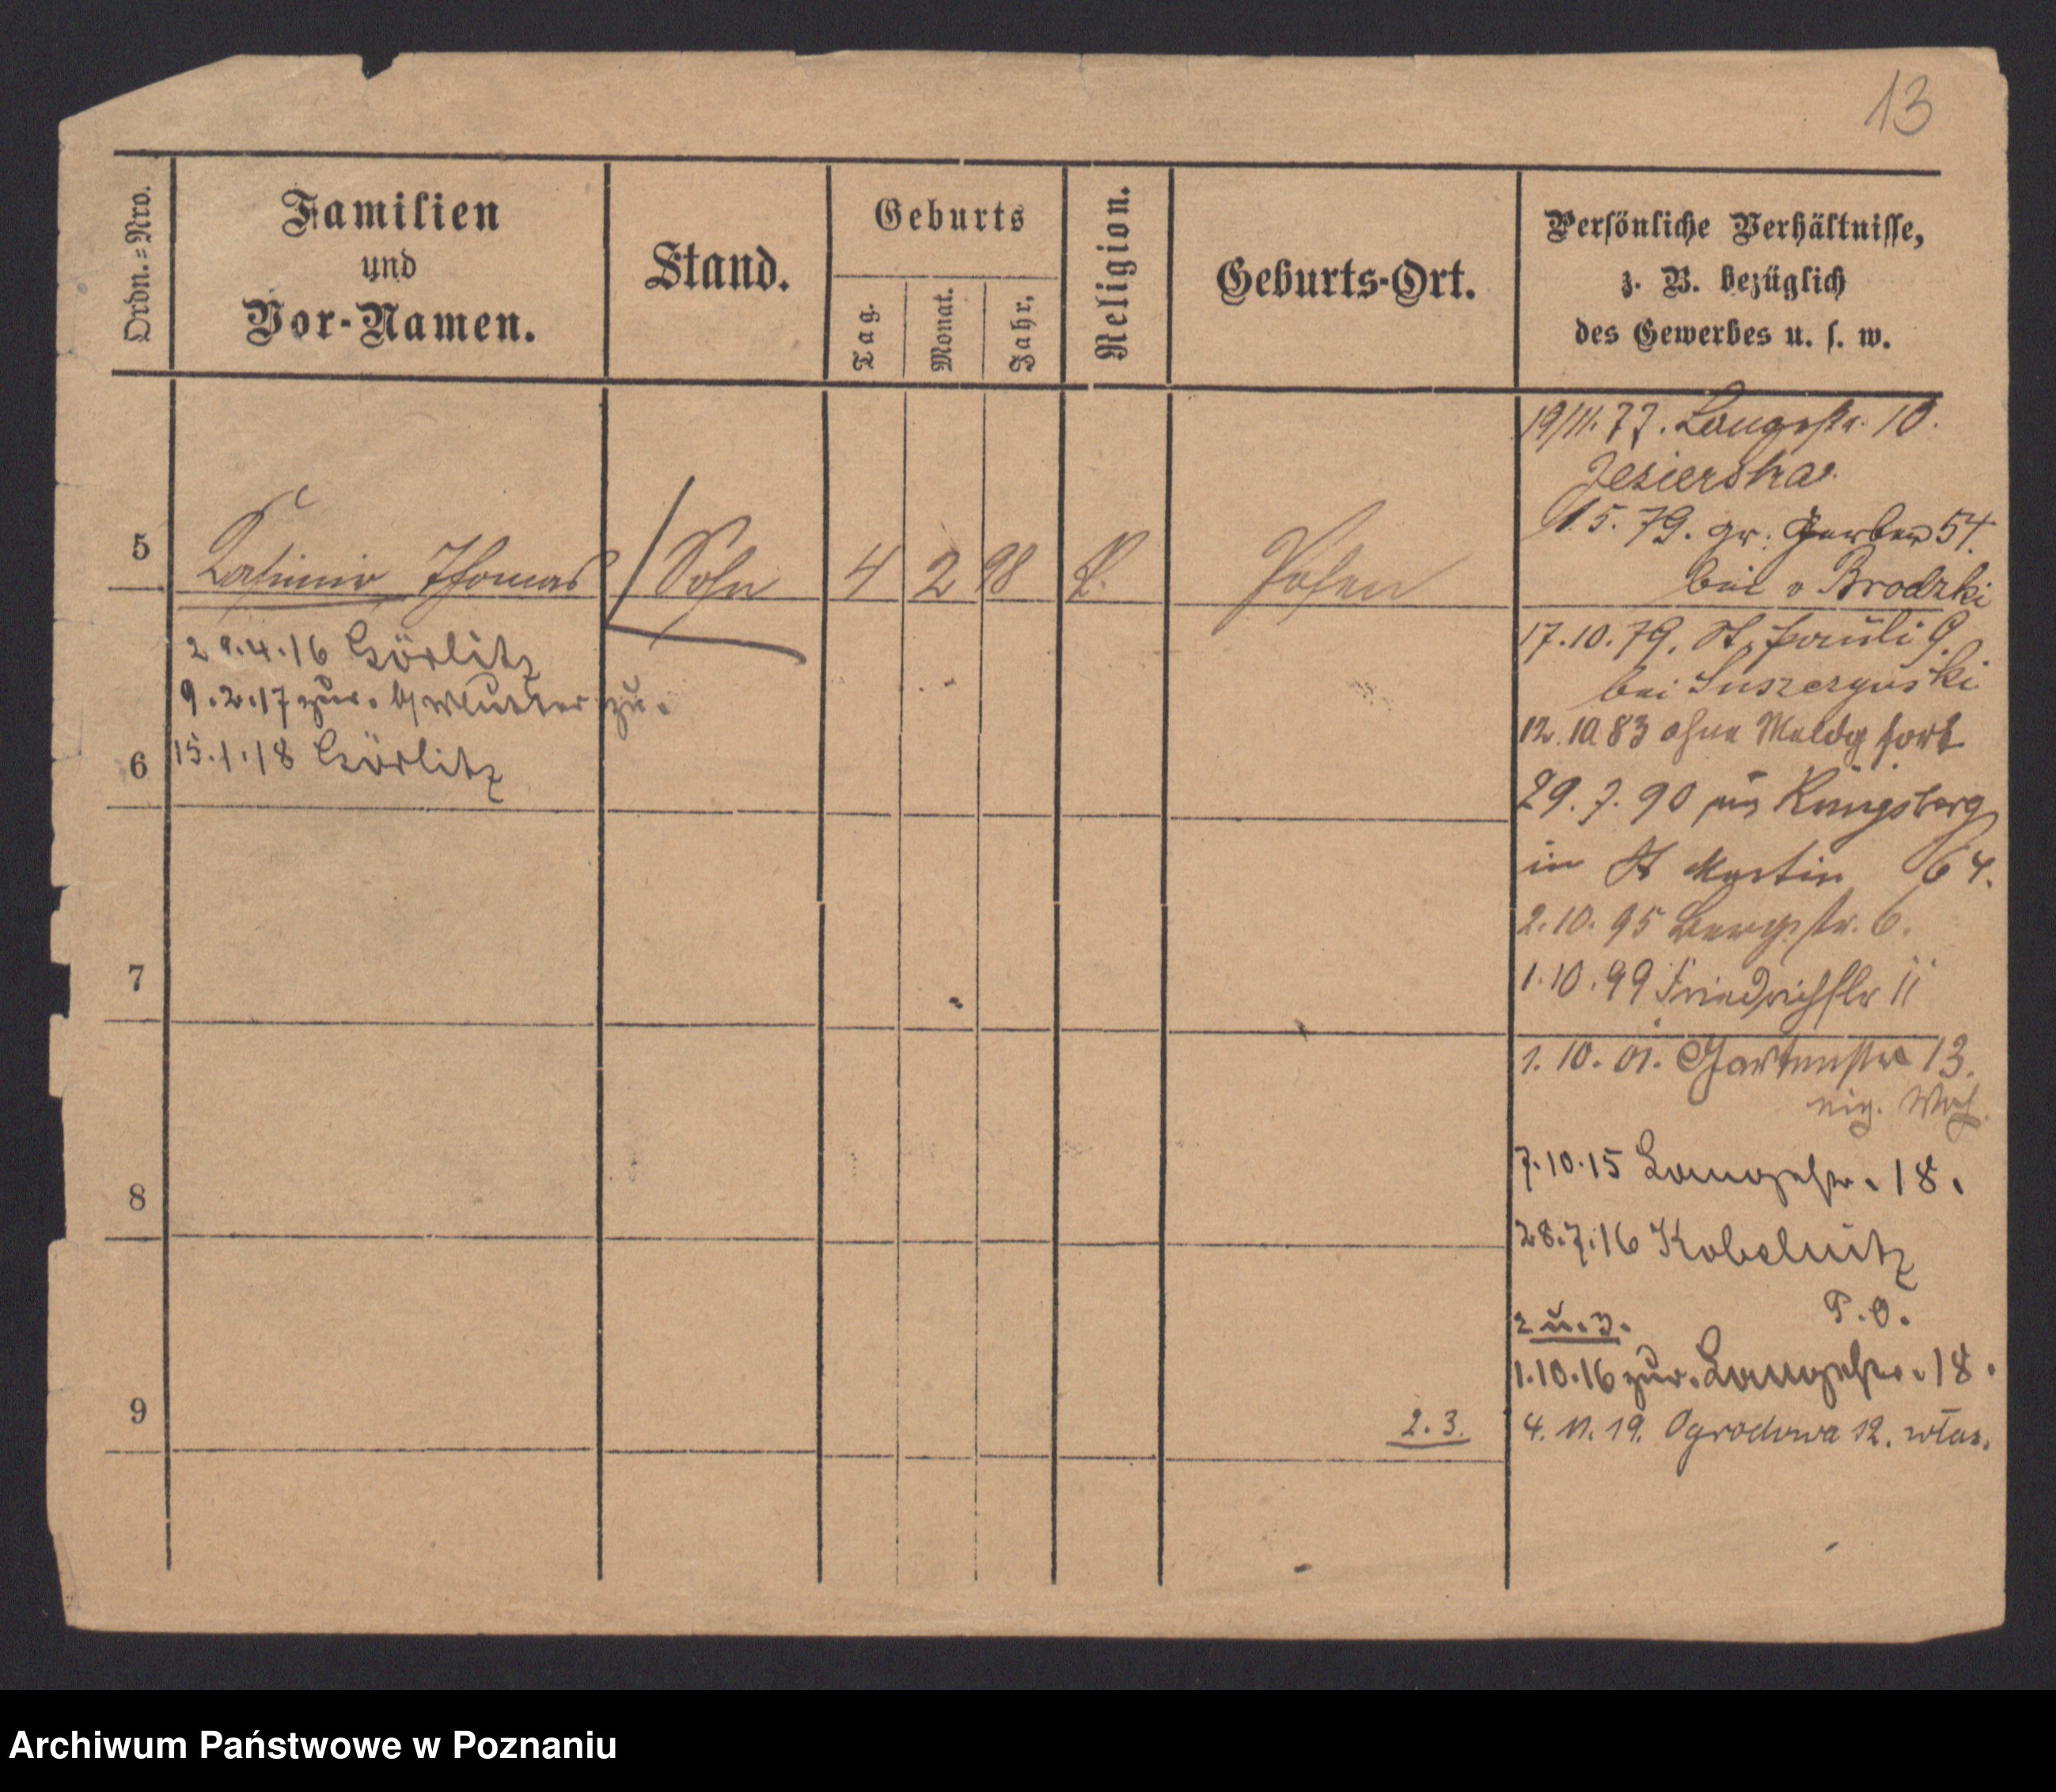 13
Ordn.=Nro.
Familien
und
Vor-Namen.
Stand.
Geburts
Tag.
Monat.
Jahr.
Religion.
Geburts-Ort.
Persönliche Verhältnisse,
z. B. bezüglich
des Gewerbes u. s. w.
19/11.77. Langestr. 10.
Jezierska
1.5.79. gr. Gerber 54.
bei v Brodzki
5 Casimir Thomas Sohn 4 2 98 k. Posen
29.4.16 Görlitz
9.2.17 zur. b/ Mutter zu.
6 15.1.18 Görlitz
17.10.79. St. Pauli 9.
bei
12.10 83 ohne Meldg fort
29.7.90 aus Königsberg
in St Martin 64.
2.10.95 Bergstr. 6.
7 1.10.99 Friedrichstr 11
1.10.01. Gartenstr 13.
eig. Whg.
8 7.10.15 Langestr. 18.
28.7.16 Kobelnitz
P.O.
2 u. 3.
1.10.16 zur. Langestr. 18.
9 2.3. 4.11.19. Ogrodowa 12. włas.
Archiwum Państwowe w Poznaniu